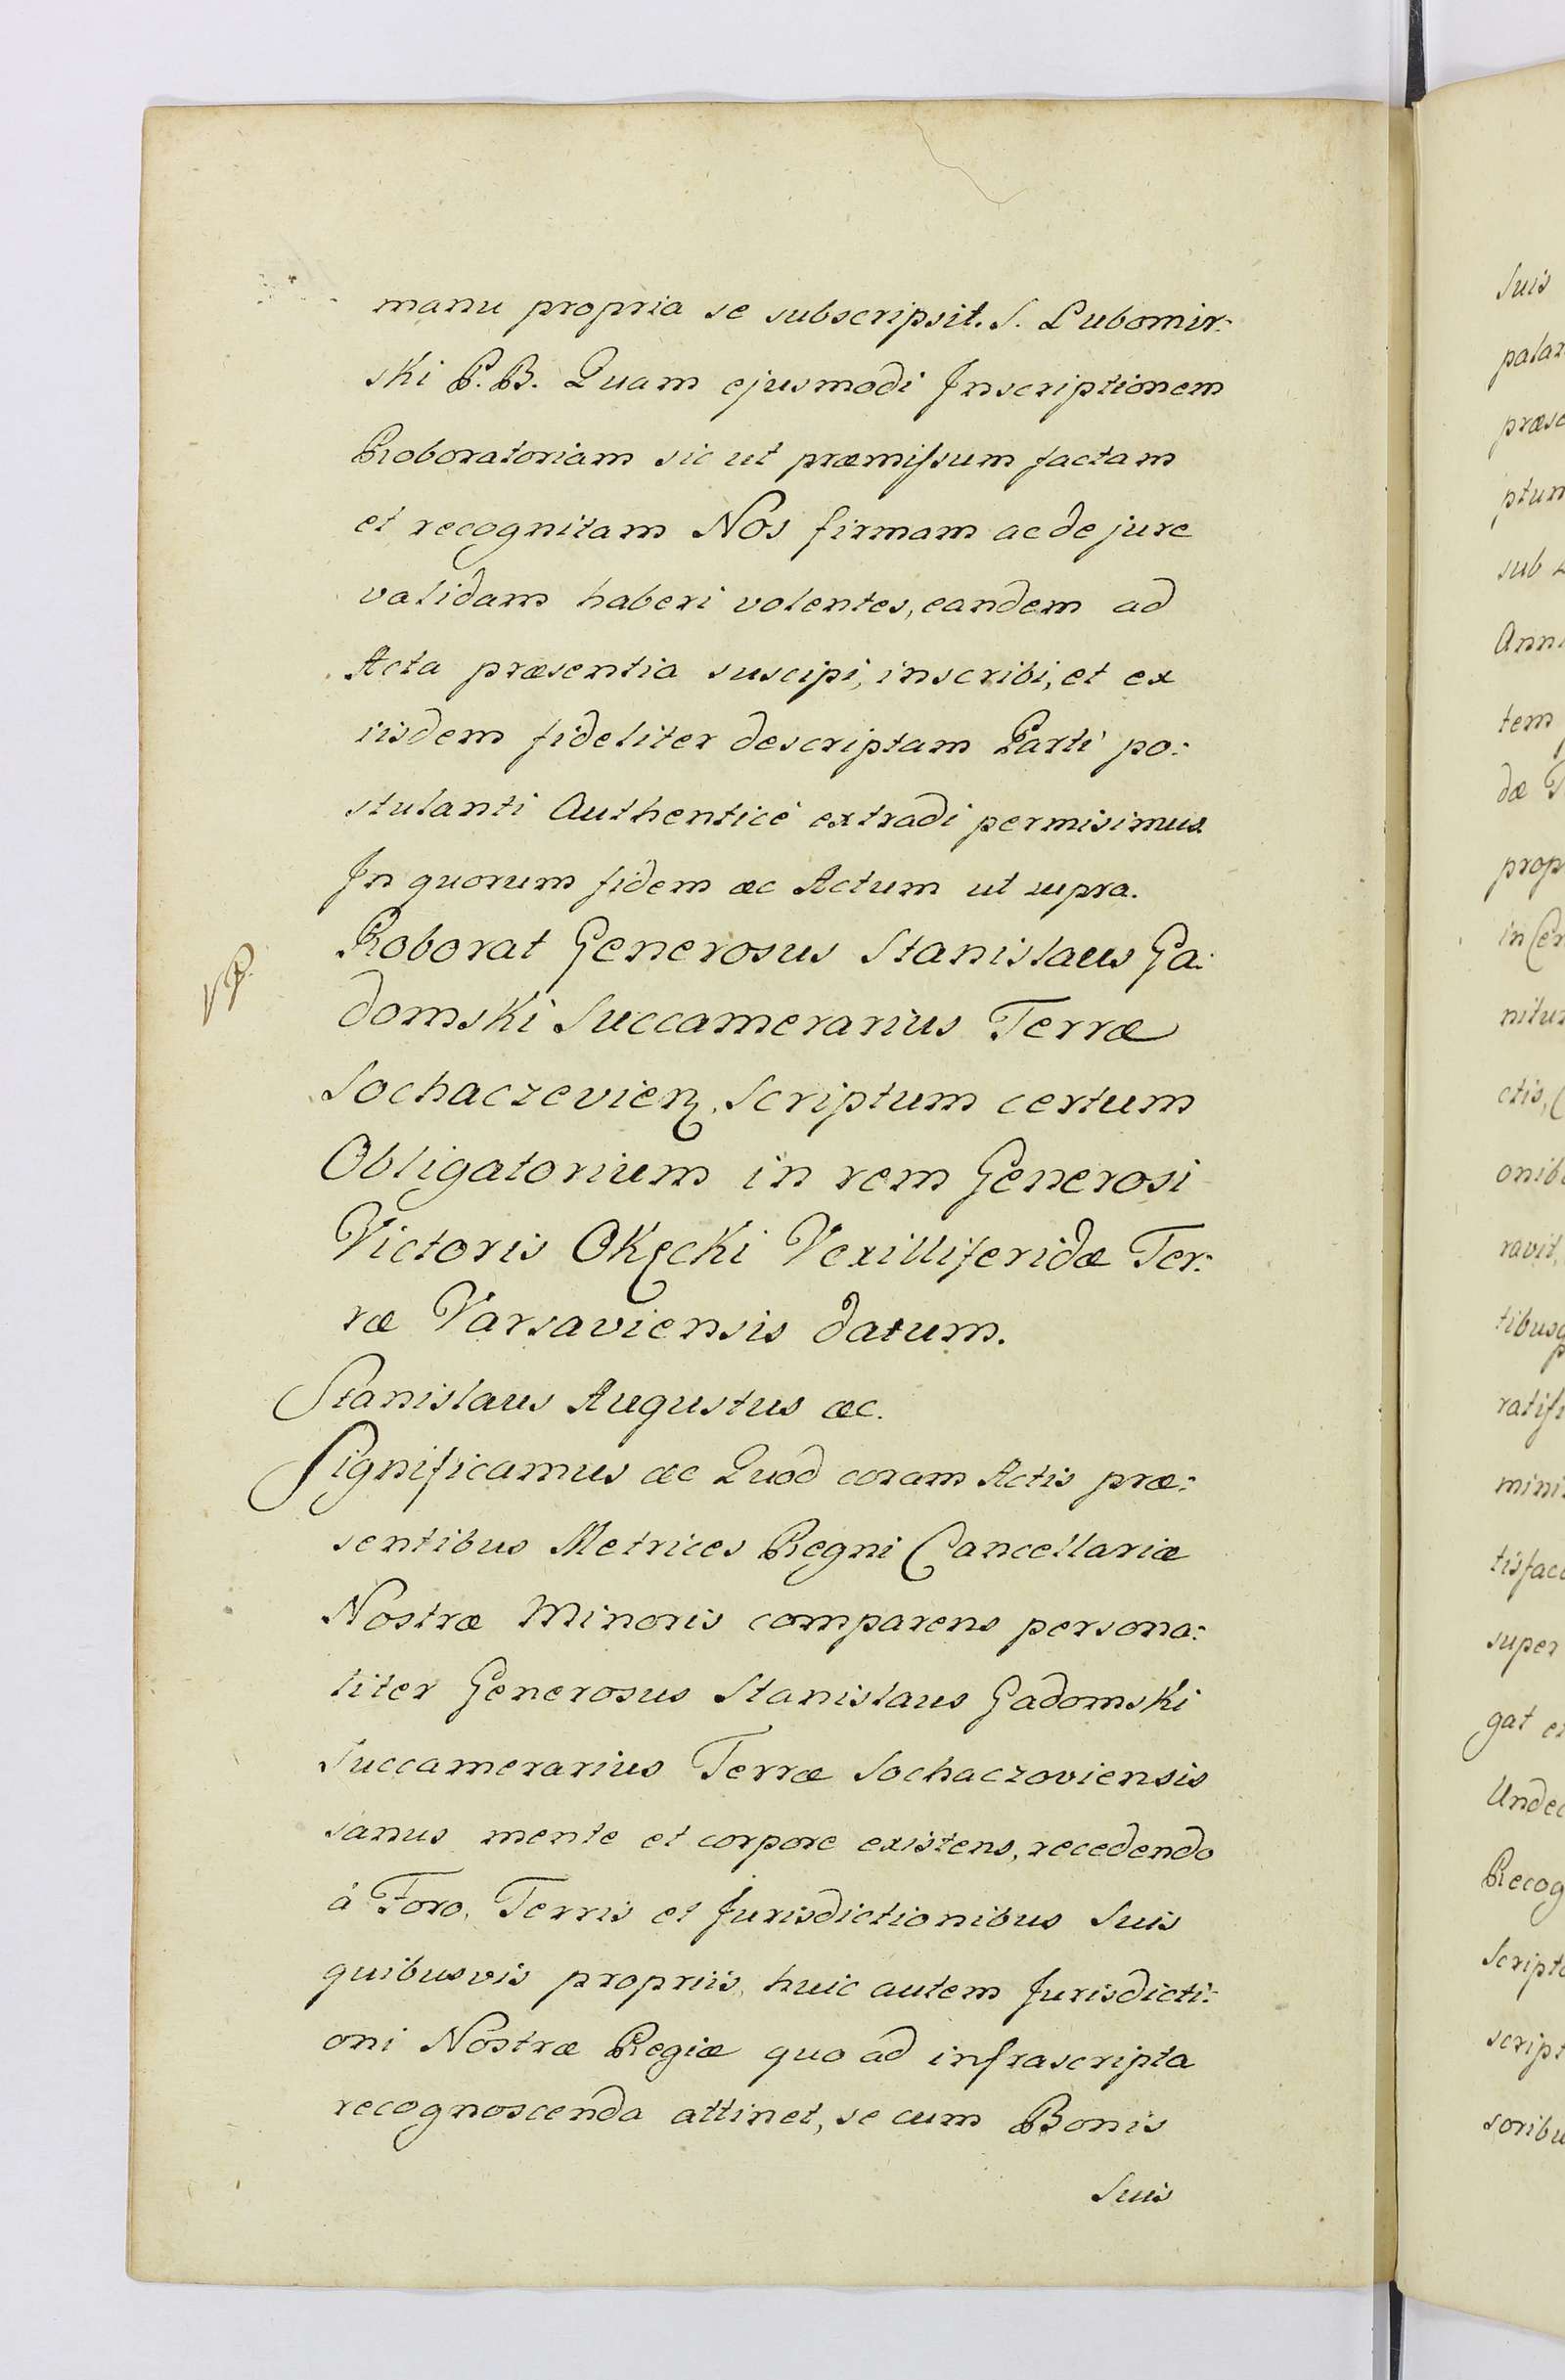 manu propria se subscripsit. S. Lubomir:
ski P. B. Quam ejusmodi Inscriptionem
Roboratoriam sic ut præmissum factam
et recognitam Nos firmam ac de jure
validam haberi volentes, eandem ad
Acta præsentia suscipi, inscribi, et ex
iisdem fideliter descriptam Parti po:
stulanti Authenticè extradi permisimus.
In quorum fidem æc Actum ut supra.
Roborat Generosus Stanislaus Ga:
domski Succamerarius Terræ
Sochaczevien. Scriptum certum
Obligatorium in rem Generosi
Victoris Okęcki Vexilliferidæ Ter:
ræ Varsaviensis datum.
Stanislaus Augustus æc.
Significamus æc Quod coram Actis præ:
sentibus Metrices Regni Cancellariæ
Nostræ Minoris comparens persona:
liter Generosus Stanislaus Gadomski
Succamerarius Terræ Sochaczoviensis
sanus mente et corpore existens, recedendo
à Foro, Terris et Jurisdictionibus Suis
quibusvis propriis, huic autem Jurisdicti:
oni Nostræ Regiæ quo ad infrascripta
recognoscenda attinet, se cum Bonis
Suis
Suis
sub
tem
super